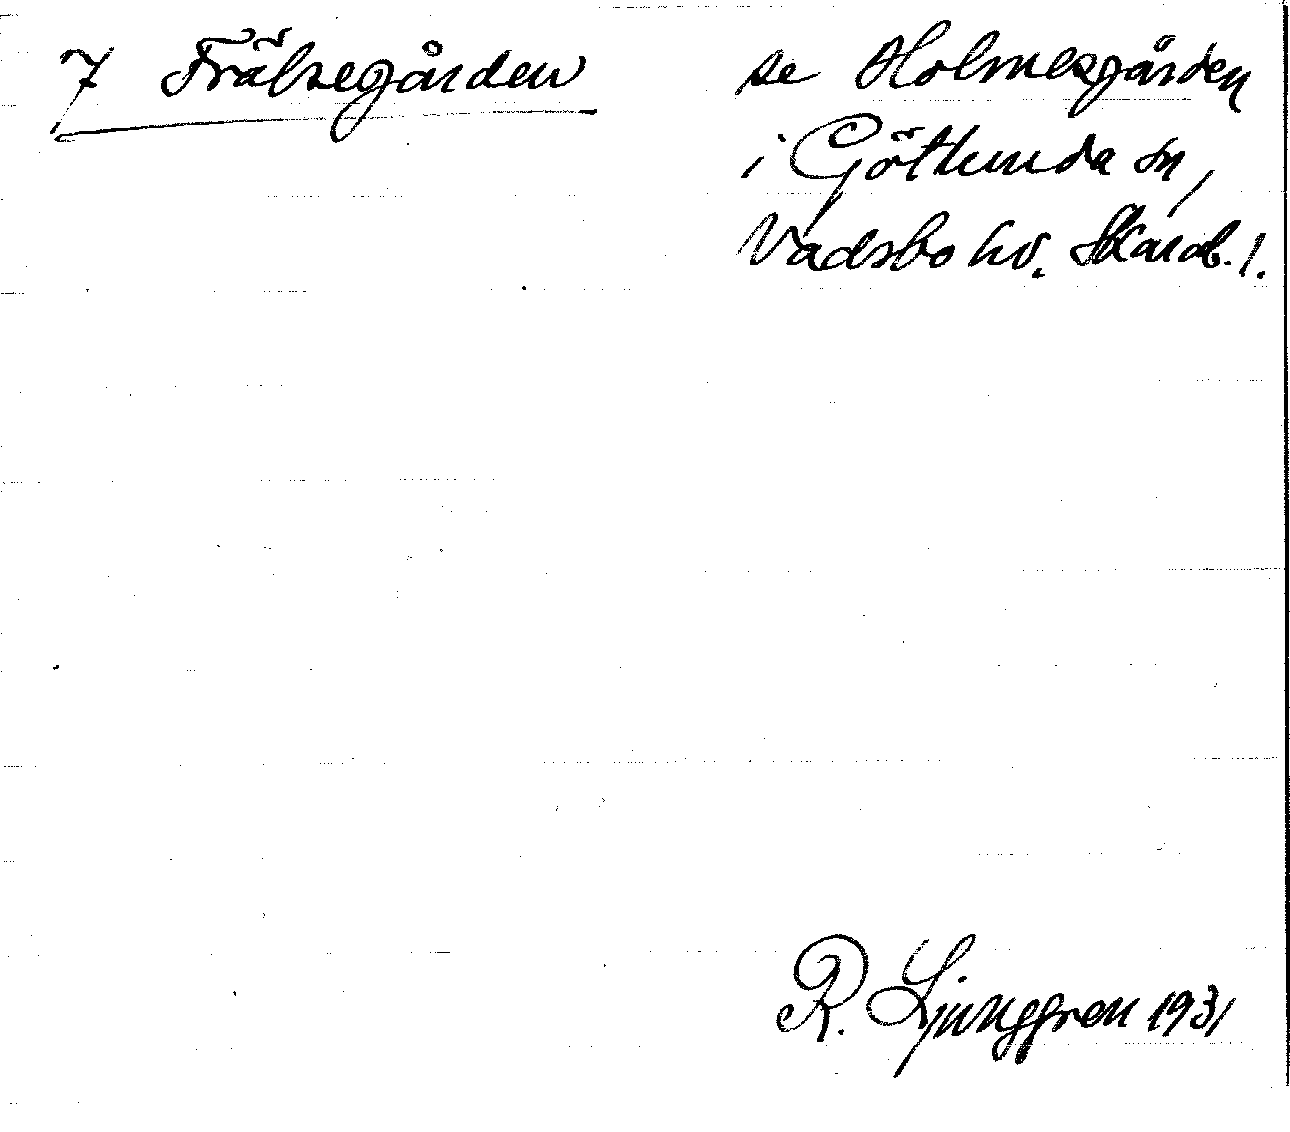 7 Frälsegården
se Holmesgården
i Götlunda sn,
Vadsbo hd. Skarab. l.
R. Ljunggren 1931